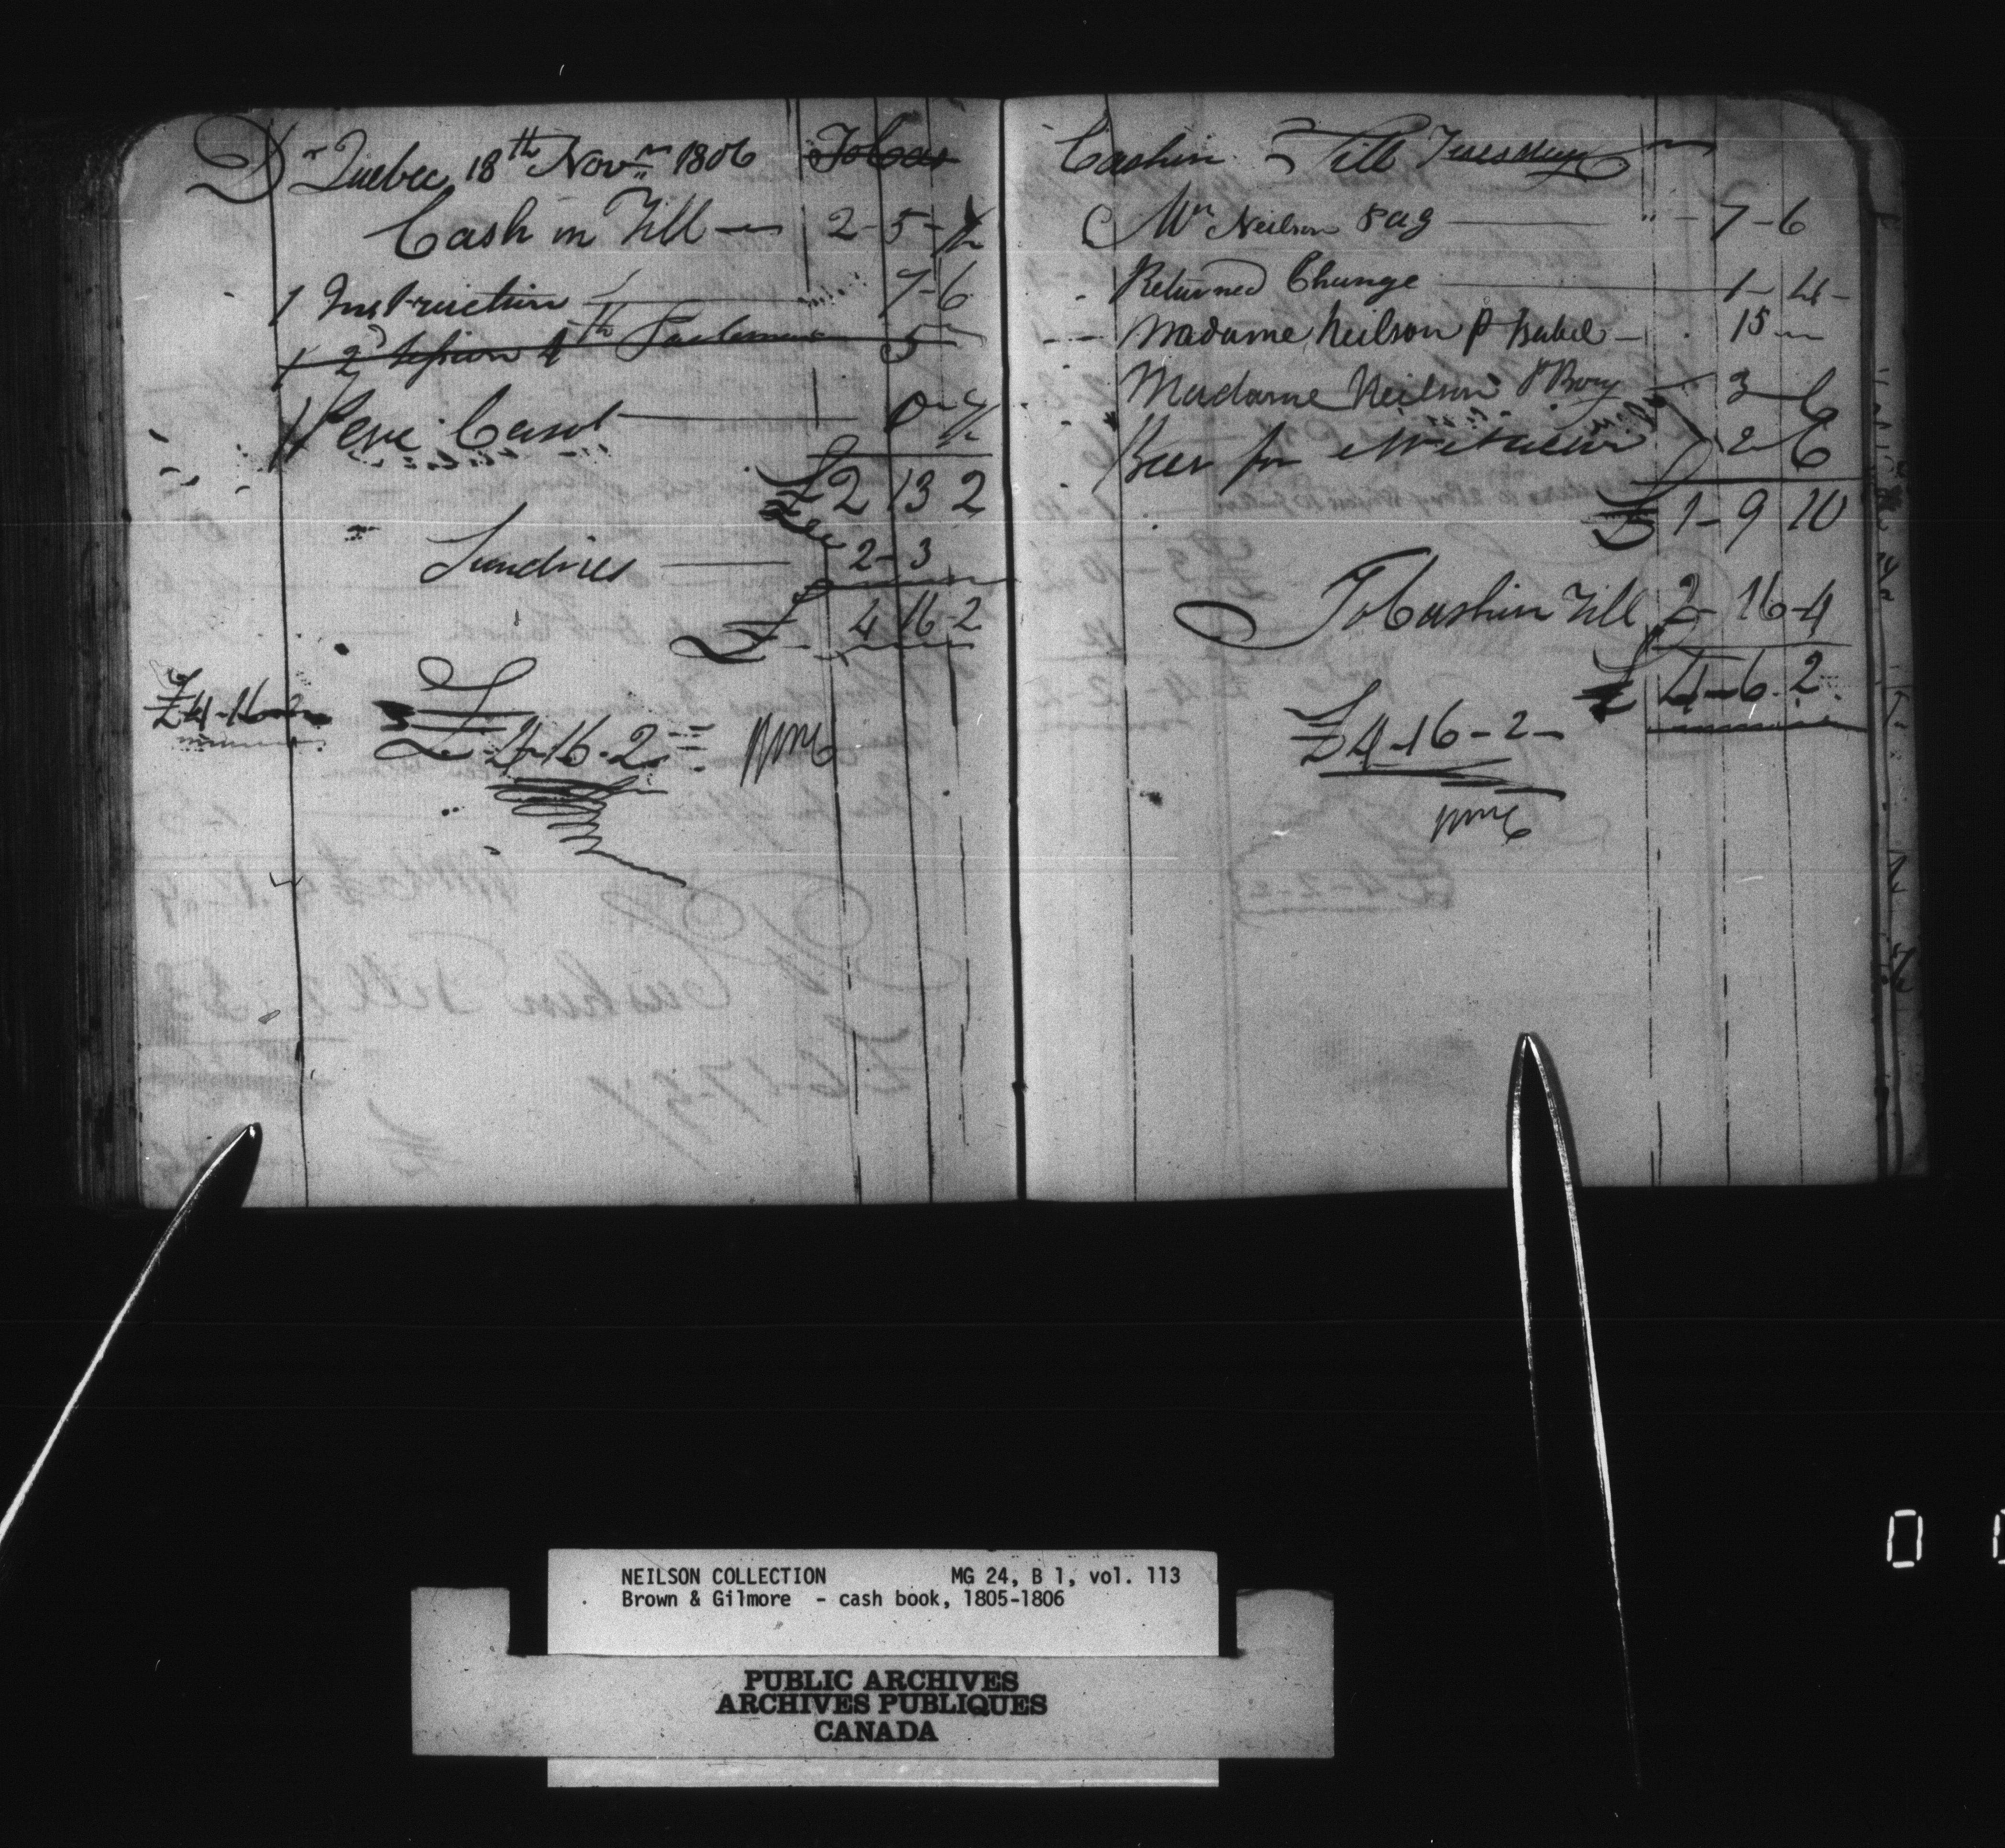 Dr Quebec 18th Novr 1806 To Cas
Cash in Till 2-5-½
1 Instruction 7-6
1 2d Session 4th Parlement 5
1 Pere Casot 0-7½
£2 13 2
Sundries 2-3
£ 4 16 2
£4-16
£4-16-2
Cash in Till Tuesday
Mr Neilson " - 7-6
Returned Change 1-4-
Madame Neilson p Isabel - 15
Madame Neilson pr Boy - 3 6
Beer for 2 6
£ 1-9 10
To Cash in Till 2-16-4
£ 4-6-2
£4-16-2-
NEILSON COLLECTION MG 24, B 1, vol. 113
Brown & Gilmore - cash book, 1805-1806
PUBLIC ARCHIVES
ARCHIVES PUBLIQUES
CANADA
0